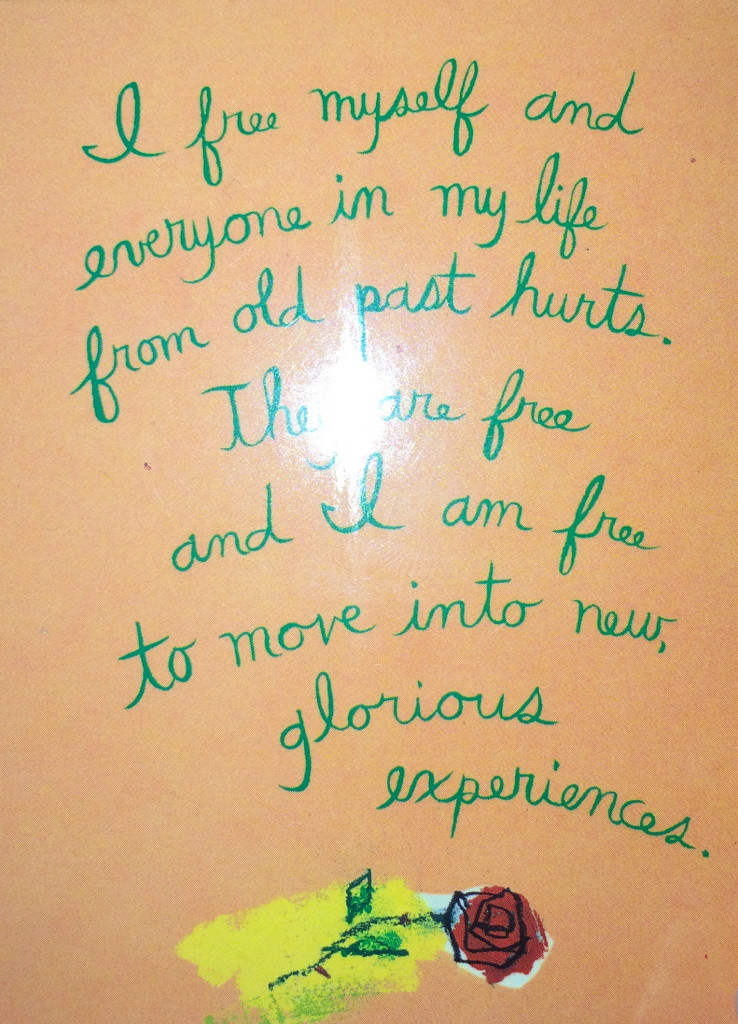 I free myself and
everyone in my life
from old past hurts.
They are free
and I am free
to move into new,
glorious
experiences.